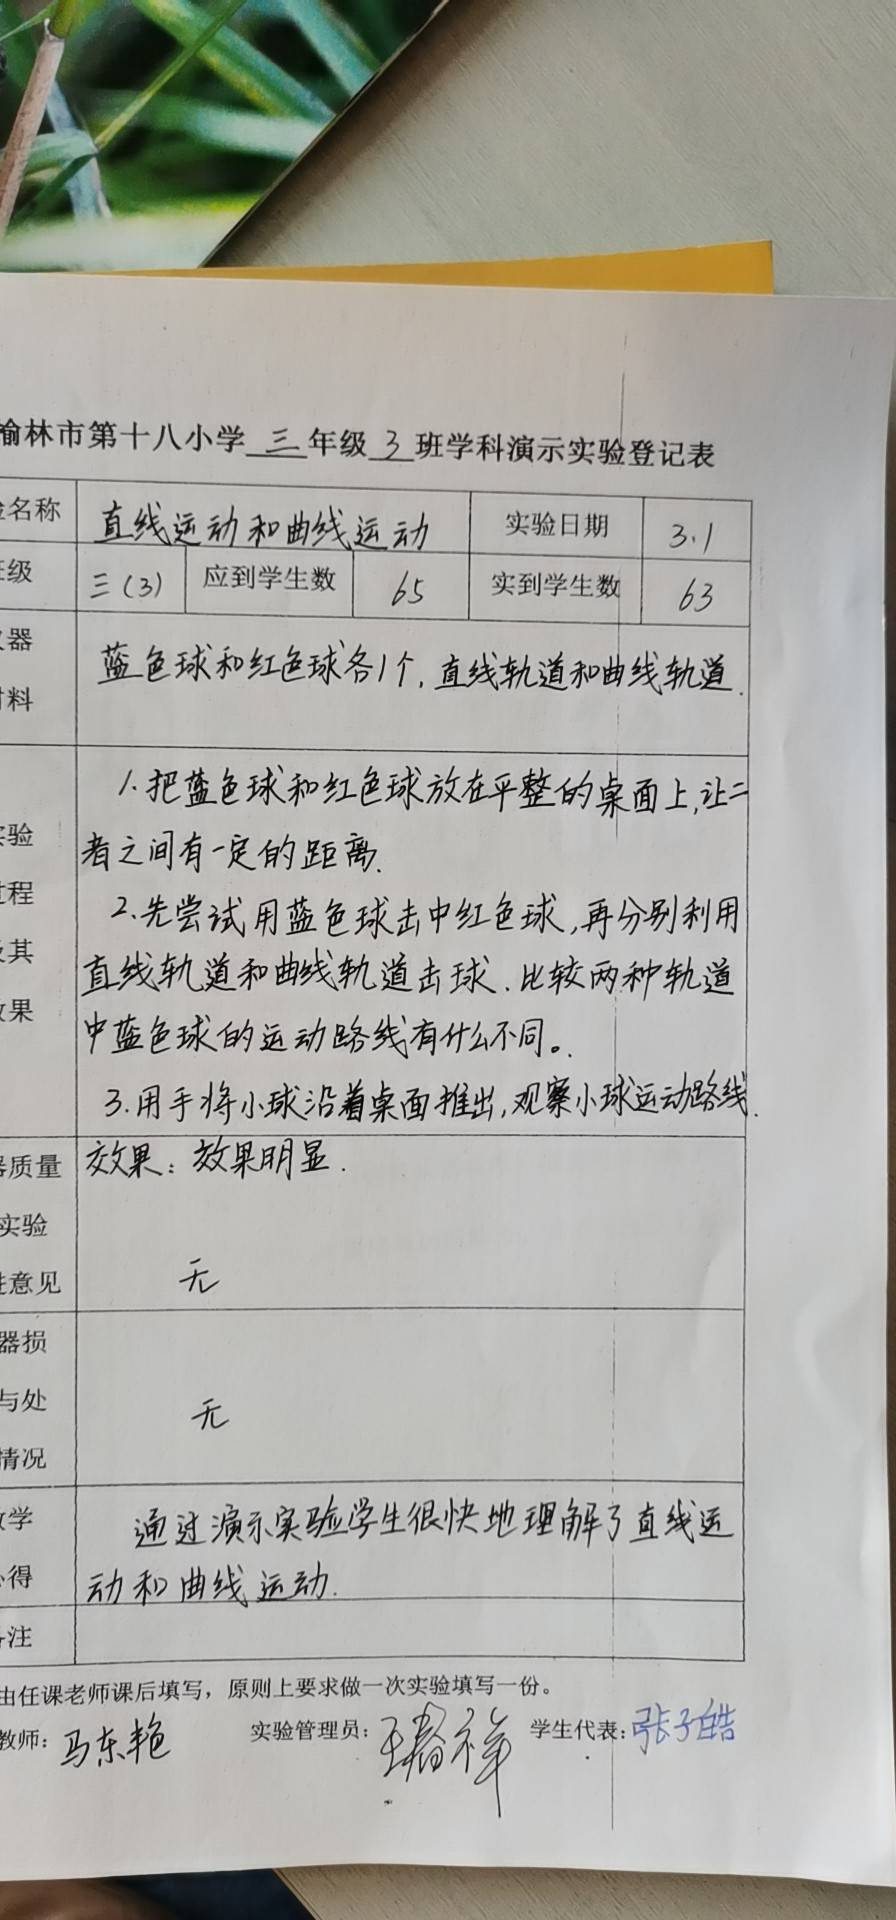 榆林市第十八小学三年级3班学科演示实验登记表
名称 直线运动和曲线运动 实验日期 3.1
级 三(3) 应到学生数 65 实到学生数 63
器
料
蓝色球和红色球各1个,直线轨道和曲线轨道.
1.把蓝色球和红色球放在平整的桌面上,让二
者之间有一定的距离.
2.先尝试用蓝色球击中红色球,再分别利用
直线轨道和曲线轨道击球.比较两种轨道
中蓝色球的运动路线有什么不同。
3.用手将小球沿着桌面推出,观察小球运动路线.
验
程
其
果
效果:效果明显.
质量
实验
意见
无
器损
与处
情况
无
学
得
通过演示实验学生很快地理解了直线运
动和曲线运动.
注
由任课老师课后填写,原则上要求做一次实验填写一份。
教师:马东艳 实验管理员: 学生代表:张子皓